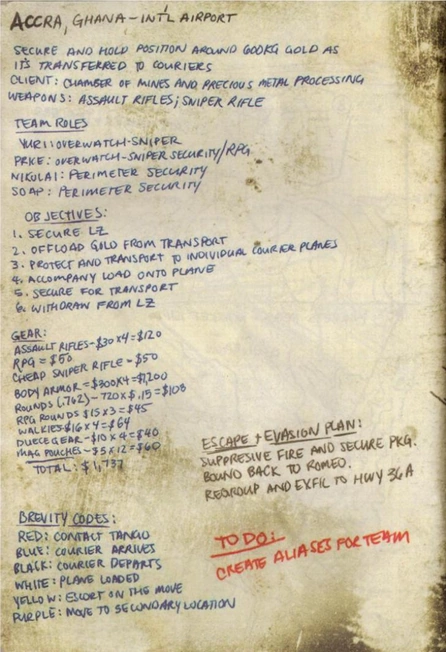 ACCRA, GHANA - INT'L AIRPORT
SECURE AND HOLD POSITION AROUND 600KG GOLD AS
IT'S TRANSFERRED TO COURIERS
CLIENT: CHAMBER OF MINES AND PRECIOUS METAL PROCESSING
WEAPONS: ASSAULT RIFLES; SNIPER RIFLE
TEAM ROLES
YURI: OVERWATCH-SNIPER
PRICE: OVERWATCH-SNIPER SECURITY/RPG
NIKOLAI: PERIMETER SECURITY
SOAP: PERIMETER SECURITY
OBJECTIVES:
1. SECURE LZ
2. OFFLOAD GOLD FROM TRANSPORT
3. PROTECT AND TRANSPORT TO INDIVIDUAL COURIER PLANES
4. ACCOMPANY LOAD ONTO PLANE
5. SECURE FOR TRANSPORT
6. WITHDRAW FROM LZ
GEAR:
ASSAULT RIFLES-$30X4=$120
RPG = $50
CHEAP SNIPER RIFLE = $50
BODY ARMOR = $300X4=$1,200
ROUNDS (.762) - 720X$.15=$108
RPG ROUNDS $15X3=$45
WALKIES $16X4=$64
DUECE GEAR-$10X4=$40
MAG POUCHES-$5X12=$60
TOTAL: $1,737
ESCAPE + EVASION PLAN:
SUPPRESIVE FIRE AND SECURE PKG.
BOUND BACK TO ROMEO.
REGROUP AND EXFIL TO HWY 36A
BREVITY CODES:
RED: CONTACT TANGO
BLUE: COURIER ARRIVES
BLACK: COURIER DEPARTS
WHITE: PLANE LOADED
YELLOW: ESCORT ON THE MOVE
PURPLE: MOVE TO SECONDARY LOCATION
TO DO:
CREATE ALIASES FOR TEAM